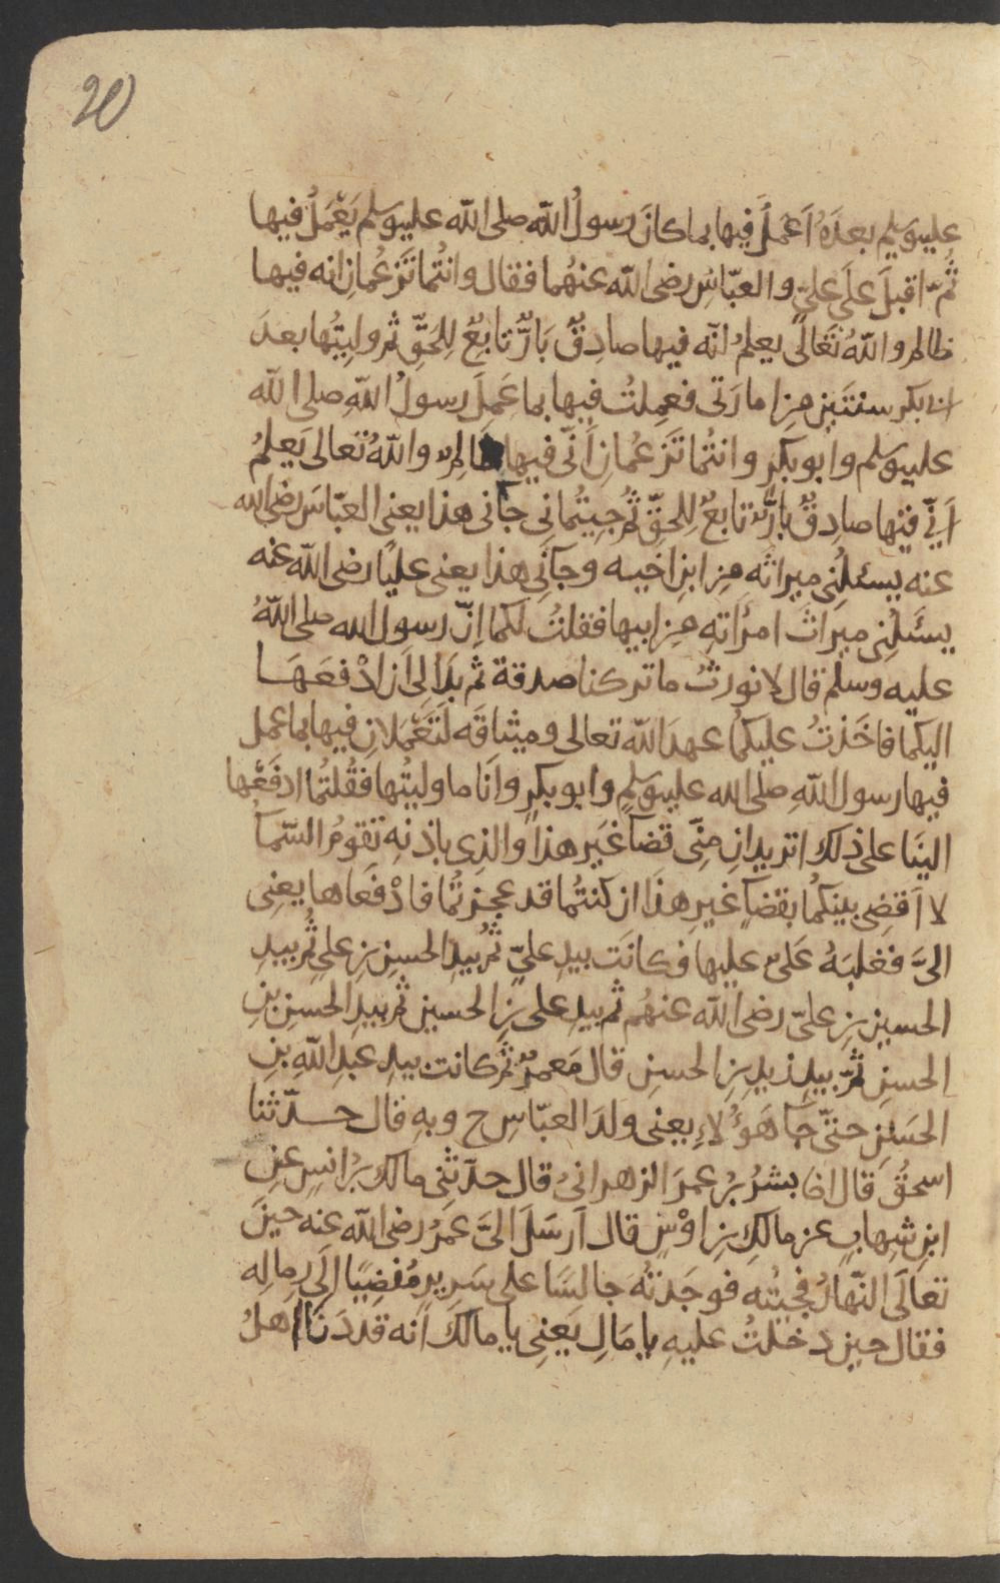 20
عليه وسلم بعدَهُ اَعمَلُ فيها بما كانَ رسولُ الله صلى الله عليه وسلم يَعْمَلُ فيها
ثُمّ اقبلَ علَى عليّ والعبّاسِ رضى الله عنهُما فقال وانتُما تَزعُمانِ انه فيها
ظالم والله تعَالَى يعلمُ انّه فيها صادِقٌ بَارٌّ تابعٌ لِلحَقِّ ثم وليتُها بعدَ
ابى بكر سنتَينِ مِن امارَتى فعمِلتُ فيها بما عَمِلَ رسولُ اللهِ صلى الله
عليه وسلم وابو بكرٍ وانتُما تَزعُمانِ اَنّى فيها ظالِمٌ واللهُ تعالى يَعلمُ
اَنِّى فيها صادِقٌ بارٌّ تابعٌ لِلحَقّ ثُمّ جِيتُمانِى جآنى هذا يعنى العبّاسَ رضى الله
عنه يسئلُنِى ميراثَه مِن ابنِ اخيه وجآنِى هذا يعنى عليًا رضى الله عنه
يسئَلُنِى ميراثَ امرَاَتِهِ مِن ابيها فقلتُ لكما اِنّ رسول الله صلى اللهُ
عليه وسلم قال لا نورثُ ما تركنا صدقة ثم بدَا لِى اَن ادْفعَهَا
اليكما فاخَذتُ عليكمُا عهدَ الله تعالى وميثاقَه لَتَعْمَلانِ فيها بما عمل
فيها رسول اللهِ صلى الله عليه وسلم وابو بكرٍ واَنا ما وليتُها فقُلتُما ادفَعْها
الينَا على ذلك اتريدانِ مِنِّى قضآً غيَر هذا والذِى باذنهِ تقومُ السّمآُ
لا اَقضِى بينكمُا بقضآٍ غيرِ هذَا ان كنتُما قد عجزتُما فادْفَعاها يعنِى
الىَّ فغلبَهُ عَلىٌّ عليها فكانَت بيدِ علىّ ثمّ بيدِ الحسنِ بنِ علىٍ ثُم بيدِ
الحسينِ بنِ علىّ رضى الله عنهُم ثم بيدِ على بنِ الحسينِ ثم بيدِ الحسنِ بنِ
الحسنِ ثمّ بيدِ زيدِ بنِ الحسنِ قال مَعمرٌ ثمّ كانت بيدِ عبدِ اللهِ بنِ
الحسَنِ حتىّ جآ هؤُلاءِ يعنى ولدَ العبّاسِ ح وبهِ قال حدّثنا
اسحقُ قال انا بشرُ بنُ عمرَ الزهرانىُ قال حدّثنى مالك بنُ انسٍ عنِ
ابنِ شِهابٍ عن مالكِ بنِ اوْسٍ قال اَرسَلَ الىَّ عمَرُ رضى الله عنه حينَ
تعالَى النّهارُ فجيتُه فوجَدتُهَ جالسًا على سَريرٍ مُفضِيًا اِلَى رِمالِه
فقال حين دخلتُ عليهِ يا مَالِ يعنِى يا مالكُ اِنه قد دَنَا اهلُ